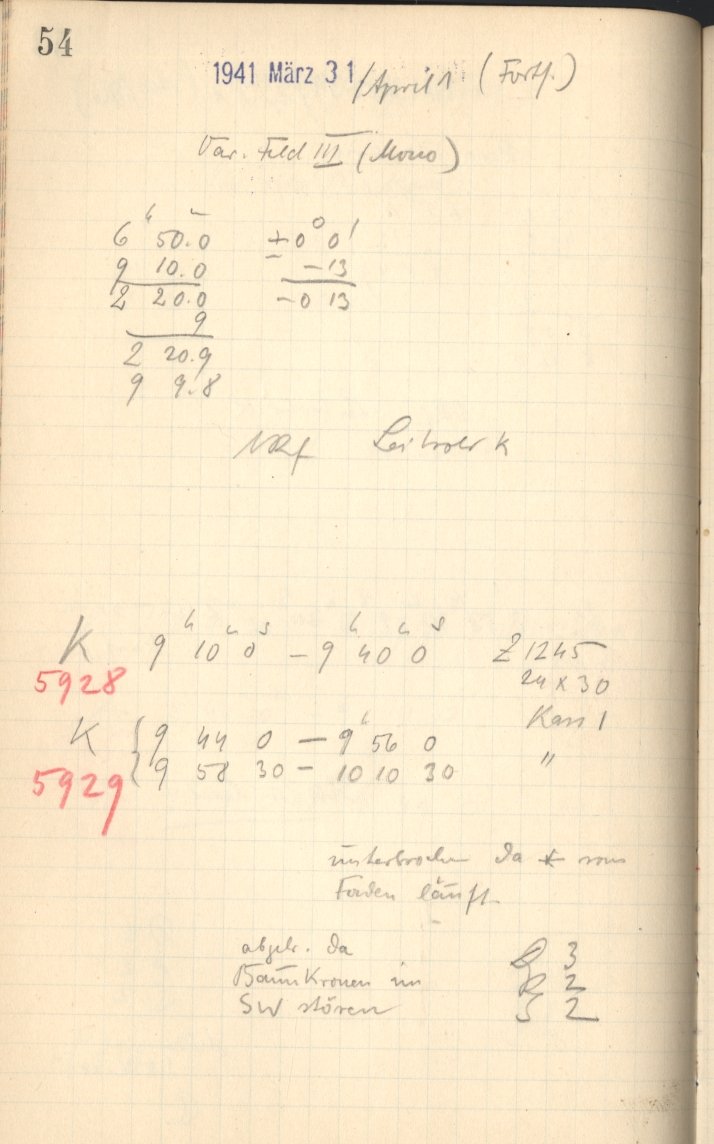 54
1941 März 31/April 1 (Forts.)
Var. Feld III (Mono)
6ʰ 50.0 ±0° 0'
9 10.0 -13
2 20.0 -0 13
9
2 20.9
9 9.8
K 9ʰ 10ᵐ 0ˢ - 9ʰ 40ᵐ 0ˢ Z 1245
5928 24 x 30
Kass 1
K { 9 44 0 - 9ʰ 56 0
5929 { 9 58 30 - 10 10 30 "
unterbrochen da * vom
Faden läuft
abgebr. da
Baumkronen im
SW stören
3
R 2
S 2